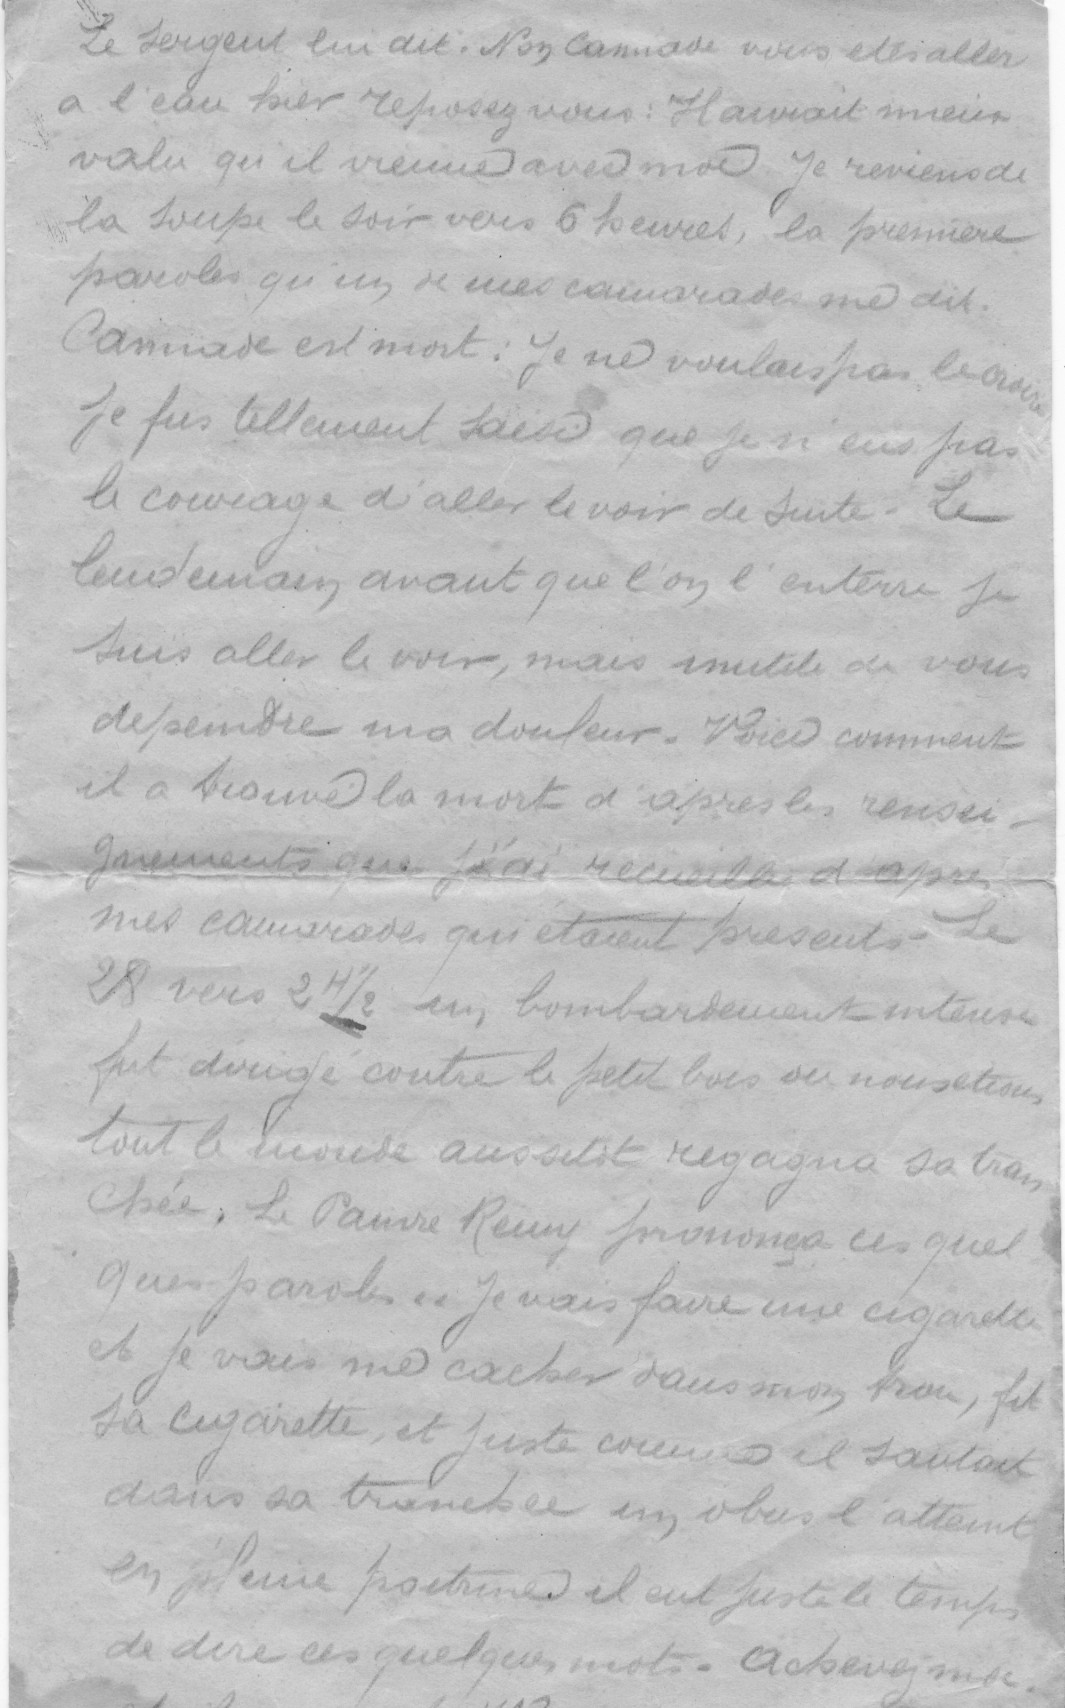 Le Sergent lui dit. Non Cannade vous etes aller
a l'eau hier reposez vous : Il aurait mieux
valu qu'il vienne avec moi. Je reviens de
la soupe le soir vers 6 heures, la premiere
paroles qu'un de mes camarades me dit.
Cannade est mort : Je ne voulais pas le croire
Je fus tellement saisi que je n'eus pas
le courage d'aller le voir de suite - Le
lendemain avant que l'on l'enterre je
suis aller le voir, mais inutile de vous
depeindre ma douleur. Voici comment
il a trouvé la mort d'apres les rensei-
gnements que j'ai recueillis d'apres
mes camarades qui étaient presents - Le
28 vers 2 H 1/2 un bombardement intense
fut dirigé contre le petit bois ou nous etions
tout le monde aussitôt regagna sa tran
chée. Le Pauvre Remy prononça ces quel
ques paroles .. Je vais faire une cigarette
et je vais me cacher dans mon trou, fit
sa cigarette, et juste comme il sautait
dans sa tranchée un obus l'atteint
en pleine poitrine il eut juste le temps
de dire ces quelques mots - Achevez moi.